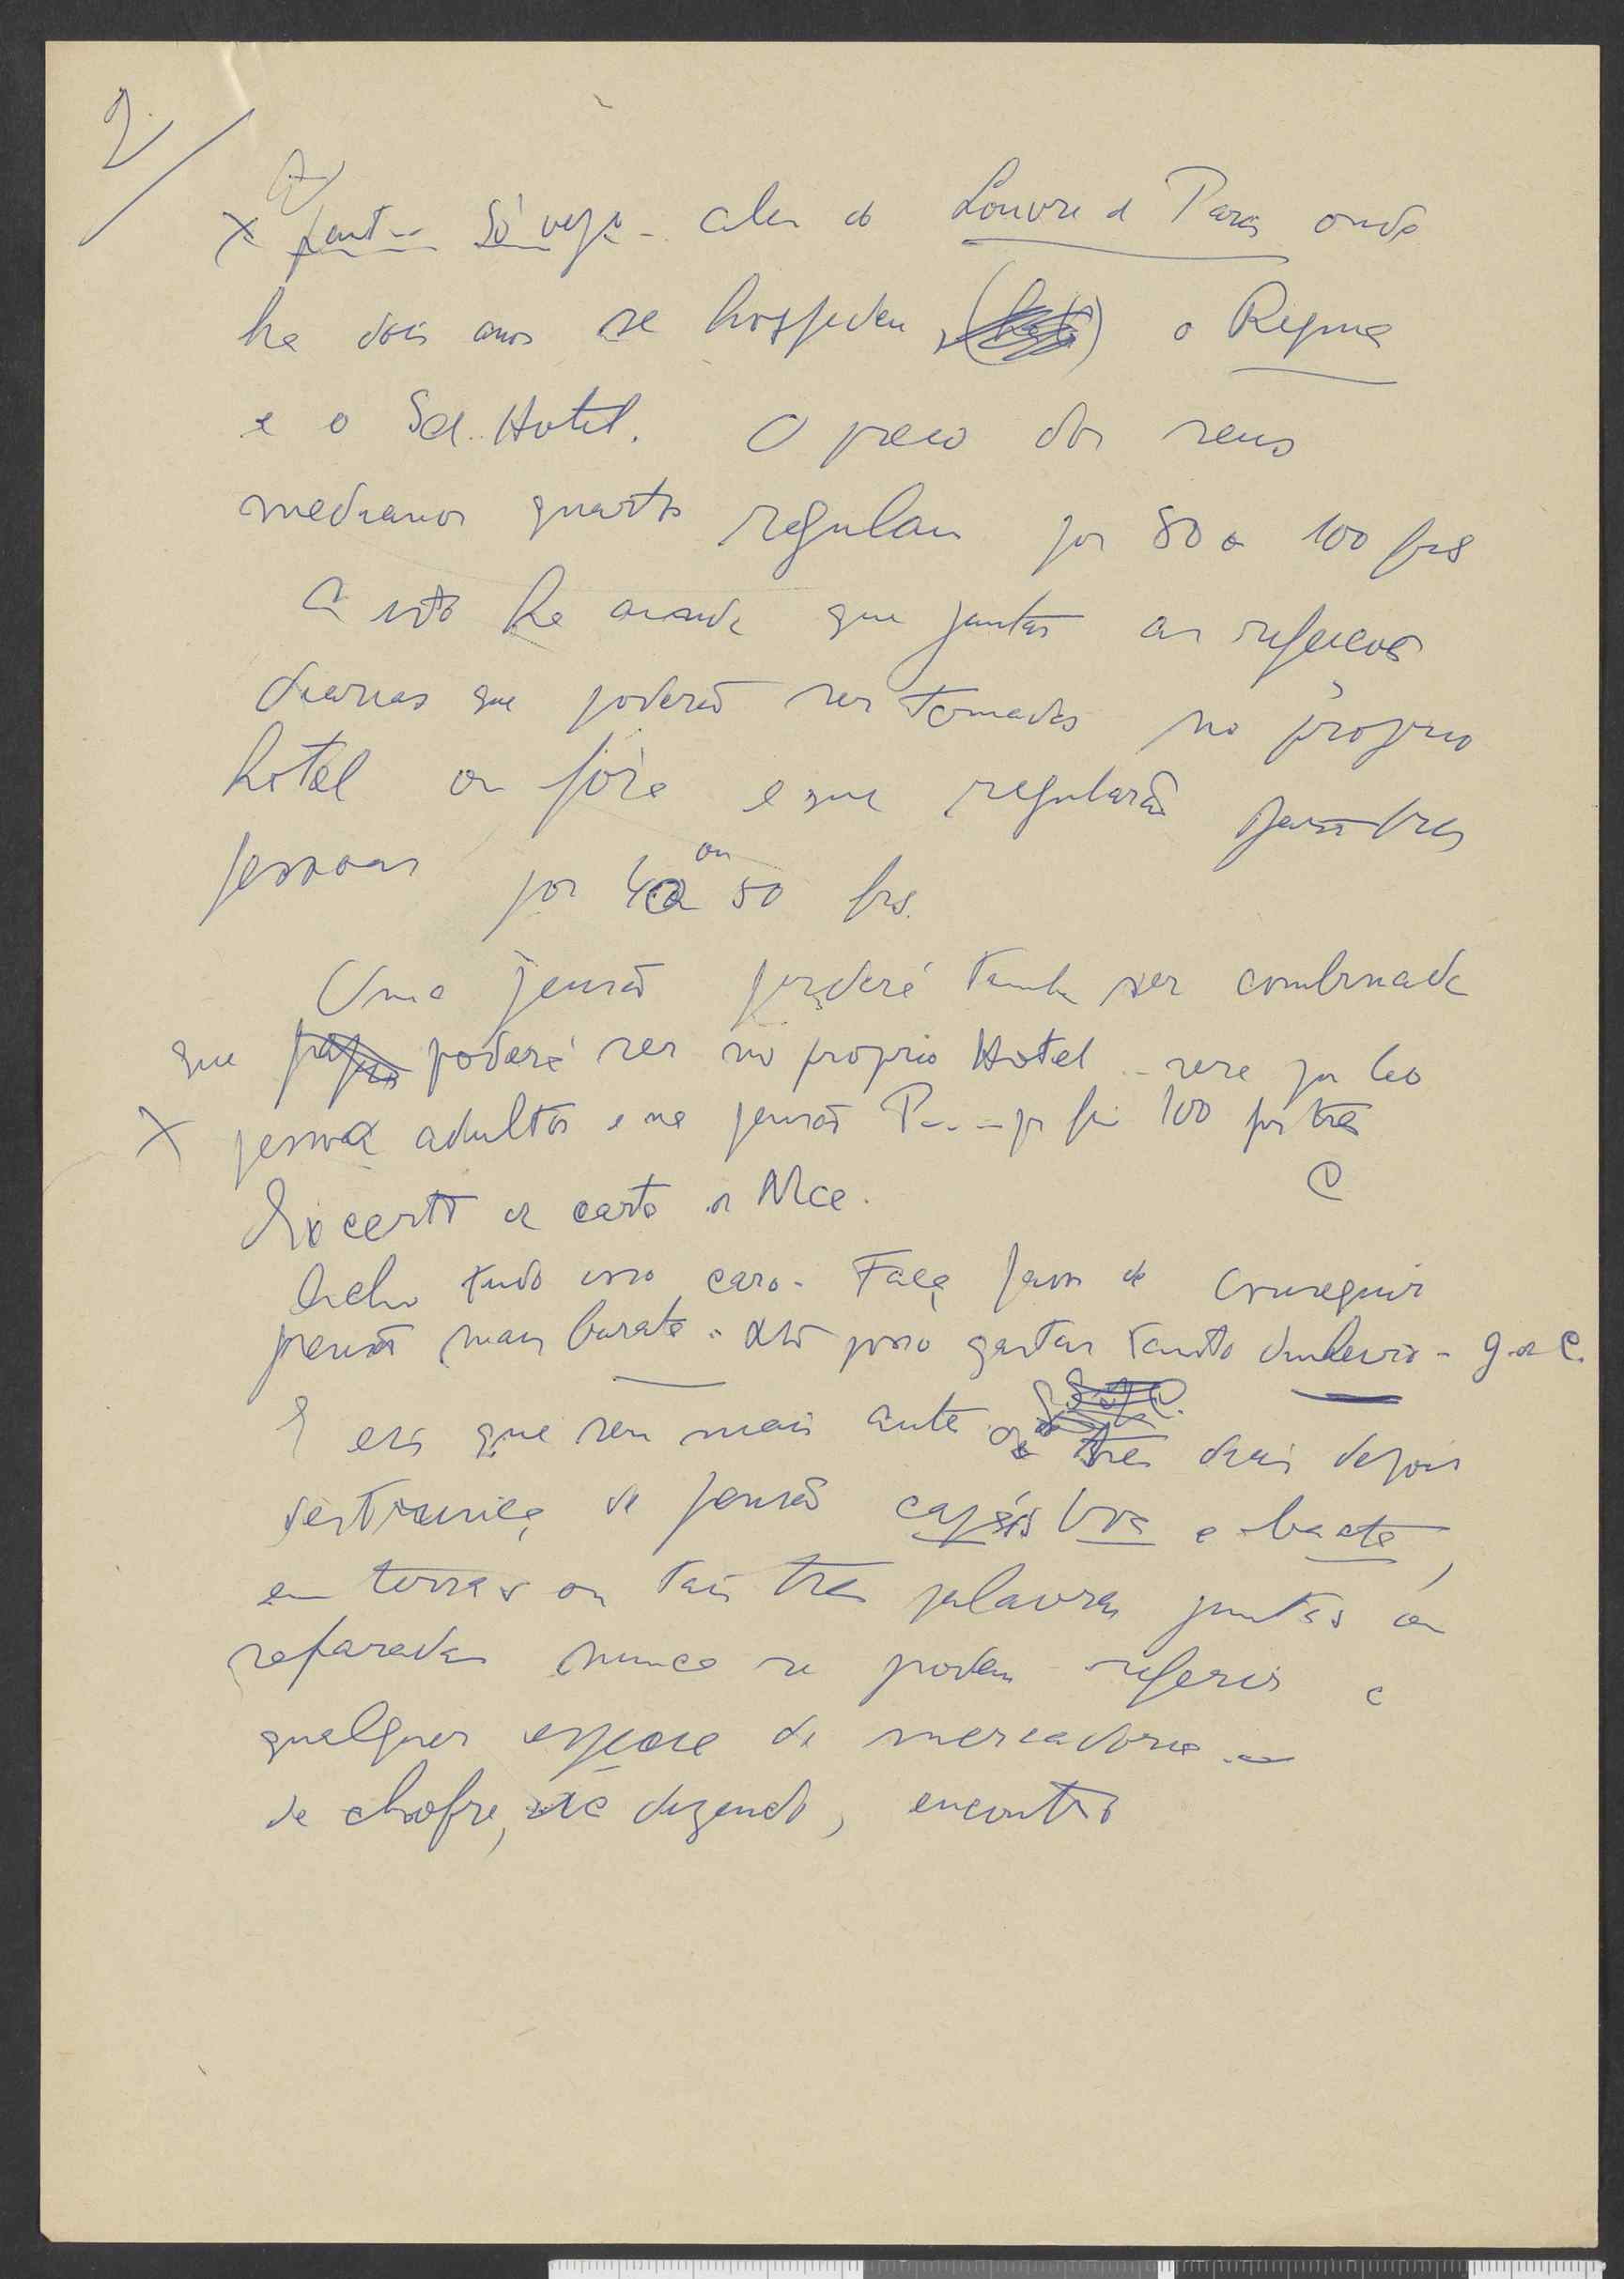 2/
X Só vejo - alem do Louvre de Paris onde
ha dois anos se hospedou, o Regina
e o Sd. Hotel. O preço dos seus
medianos quartos regulam por 80 a 100 frs
A isto ha ainda que juntar as refeicoes
diarias que poderão ser tomadas no proprio
hotel ou fóra e que regularão para tres
pessoas por 40 ou 50 frs.
Uma pensão poderá tambem ser combinada
que poderá ser no proprio Hotel - sera por
X pessoa adultos e na pensão P--- 100 por tres
Excerto de carta a Alice.
Acho tudo isso caro - Faça favor de conseguir
pensão mais barata. Não posso gastar tanto dinheiro - g. de C.
E eis que sem mais ante tres dias depois
de pensão
em terras ou tais tres palavras juntas ou
separadas nunca se podem referir a
qualquer especie de mercadoria -
de chofre, dizendo, encontro